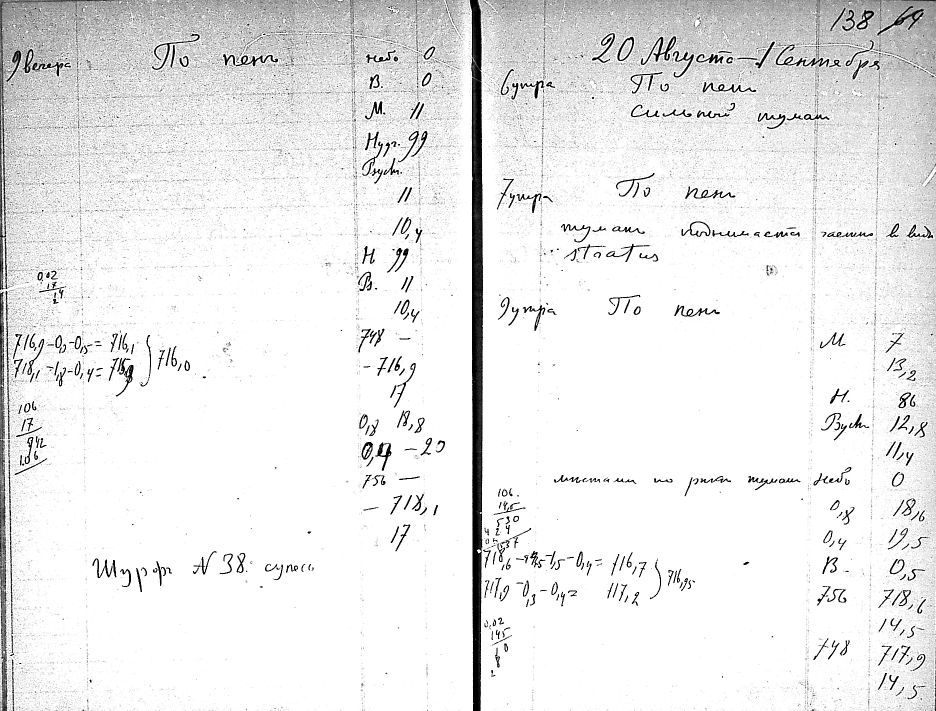 9 вечера По пень небо 0
В. 0
М. 11
Нудг. 99
Psychr.
11
10,4
Н 99
В. 11
10,4
0,02
17
14
2
716,9-0,3-0,5= 716,1
718,1-1,8-0,4= 715,9
716,0
748 —
- 716,9
17
106
17
942
106
0,8 18,8
0,4 - 20
756 —
- 718,1
17
Шурф N 38. супесь
138 69
20 Августа - 1 Сентября
6 утра По пень
сильный туман
7 утра По пень
туман поднимается частью в виде
stratus
9 утра По пень
М 7
13,2
Н. 86
Psychr 12,8
11,4
местами по реке туман небо 0
0,8 18,6
0,4 19,5
В. 0,5
756 718,6
14,5
748 717,9
14,5
106.
14,5
530
424
1537
718,6 -1,5-0,4= 716,7
717,9-0,3-0,4= 717,2
716,95
0,02
145
10
8
2